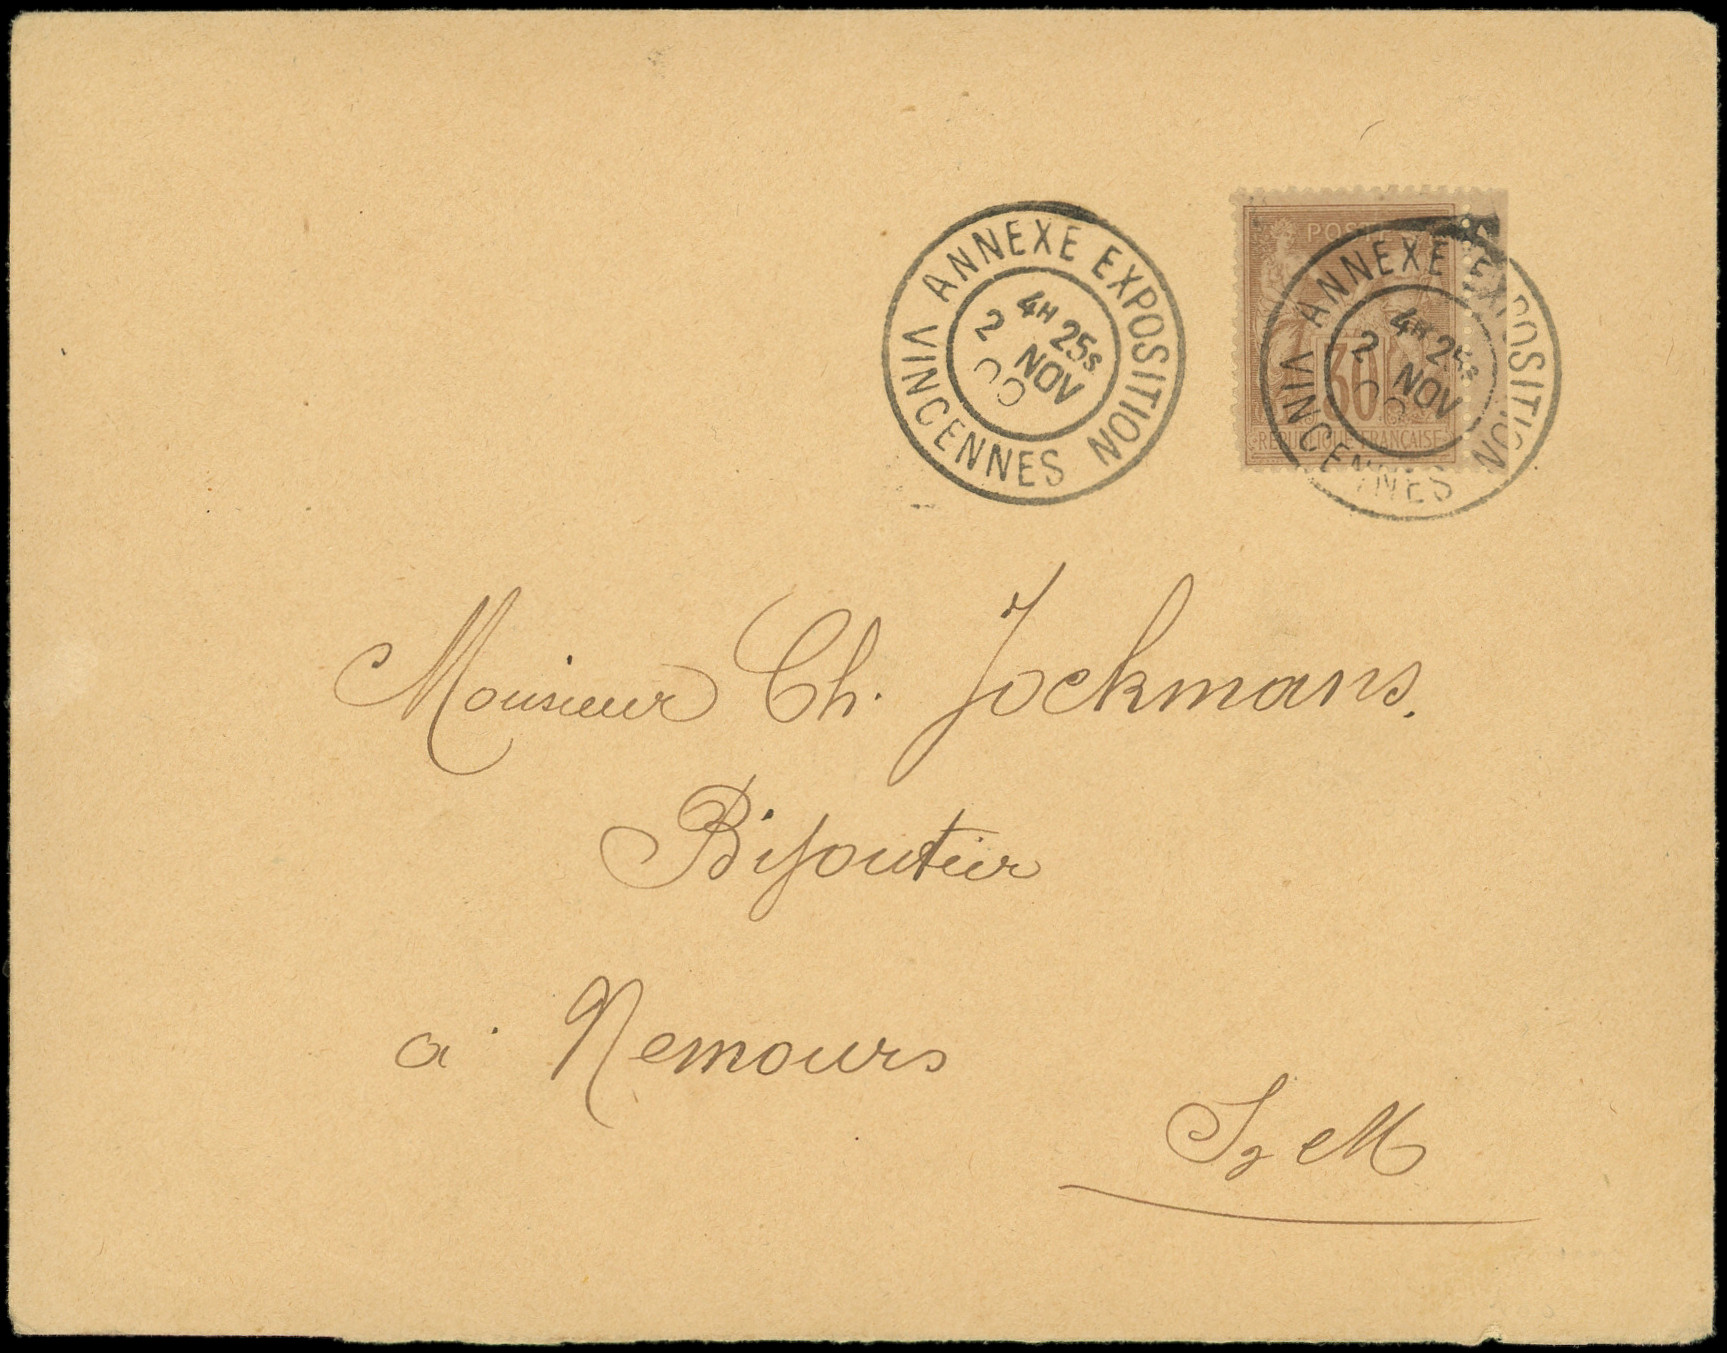 ANNEXE EXPOSITION
4H 25S
2 NOV
00
VINCENNES
POSTE
30
REPUBLIQUE FRANCAISE
ANNEXE EXPOSITION
4H 25S
2 NOV
00
VINCENNES
Monsieur Ch. Jockmans.
Bijoutier
a Nemours
S et M